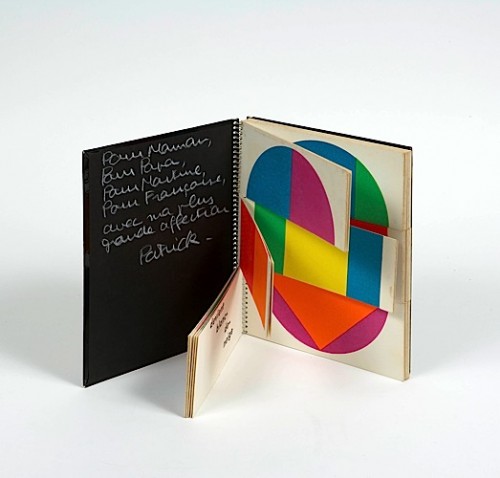 Pour Maman,
Pour Papa,
Pour Martine,
Pour Française,
avec ma plus
grande affection
Patrick -